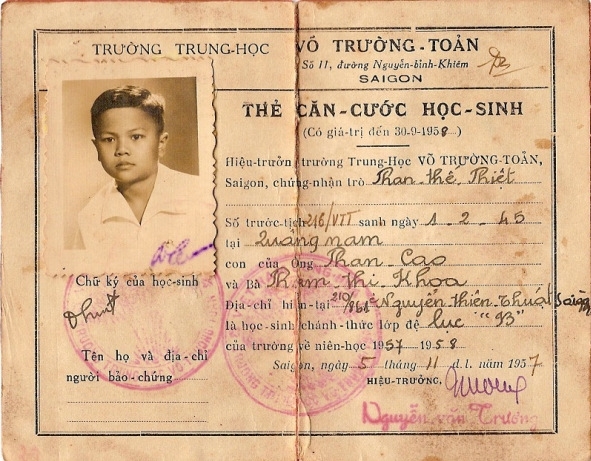 TRƯỜNG TRUNG-HỌC VÕ TRƯỜNG-TOẢN
Số 11, đường Nguyễn-bỉnh-Khiêm
SAIGON
THẺ CĂN-CƯỚC HỌC-SINH
(Có giá-trị đến 30-9-1958)
Hiệu-trưởng trường Trung-Học VÕ TRƯỜNG-TOẢN,
Saigon, chứng-nhận trò Phan thế Thiệt
Số trước-tịch 216/VTT sanh ngày 1-2-45
tại Quảng nam
con của Ông Phan Cao
và Bà Phạm thi Khoa
Địa-chỉ hiện-tại 210/ Nguyễn thiện Thuật Saigon
là học-sinh chánh-thức lớp đệ lục "B"
của trường về niên-học 1957-1958
Saigon, ngày 5 tháng 11 d.l. năm 1957
HIỆU-TRƯỞNG,
Nguyễn văn Trương
Chữ ký của học-sinh
Tên họ và địa-chỉ
người bảo-chứng